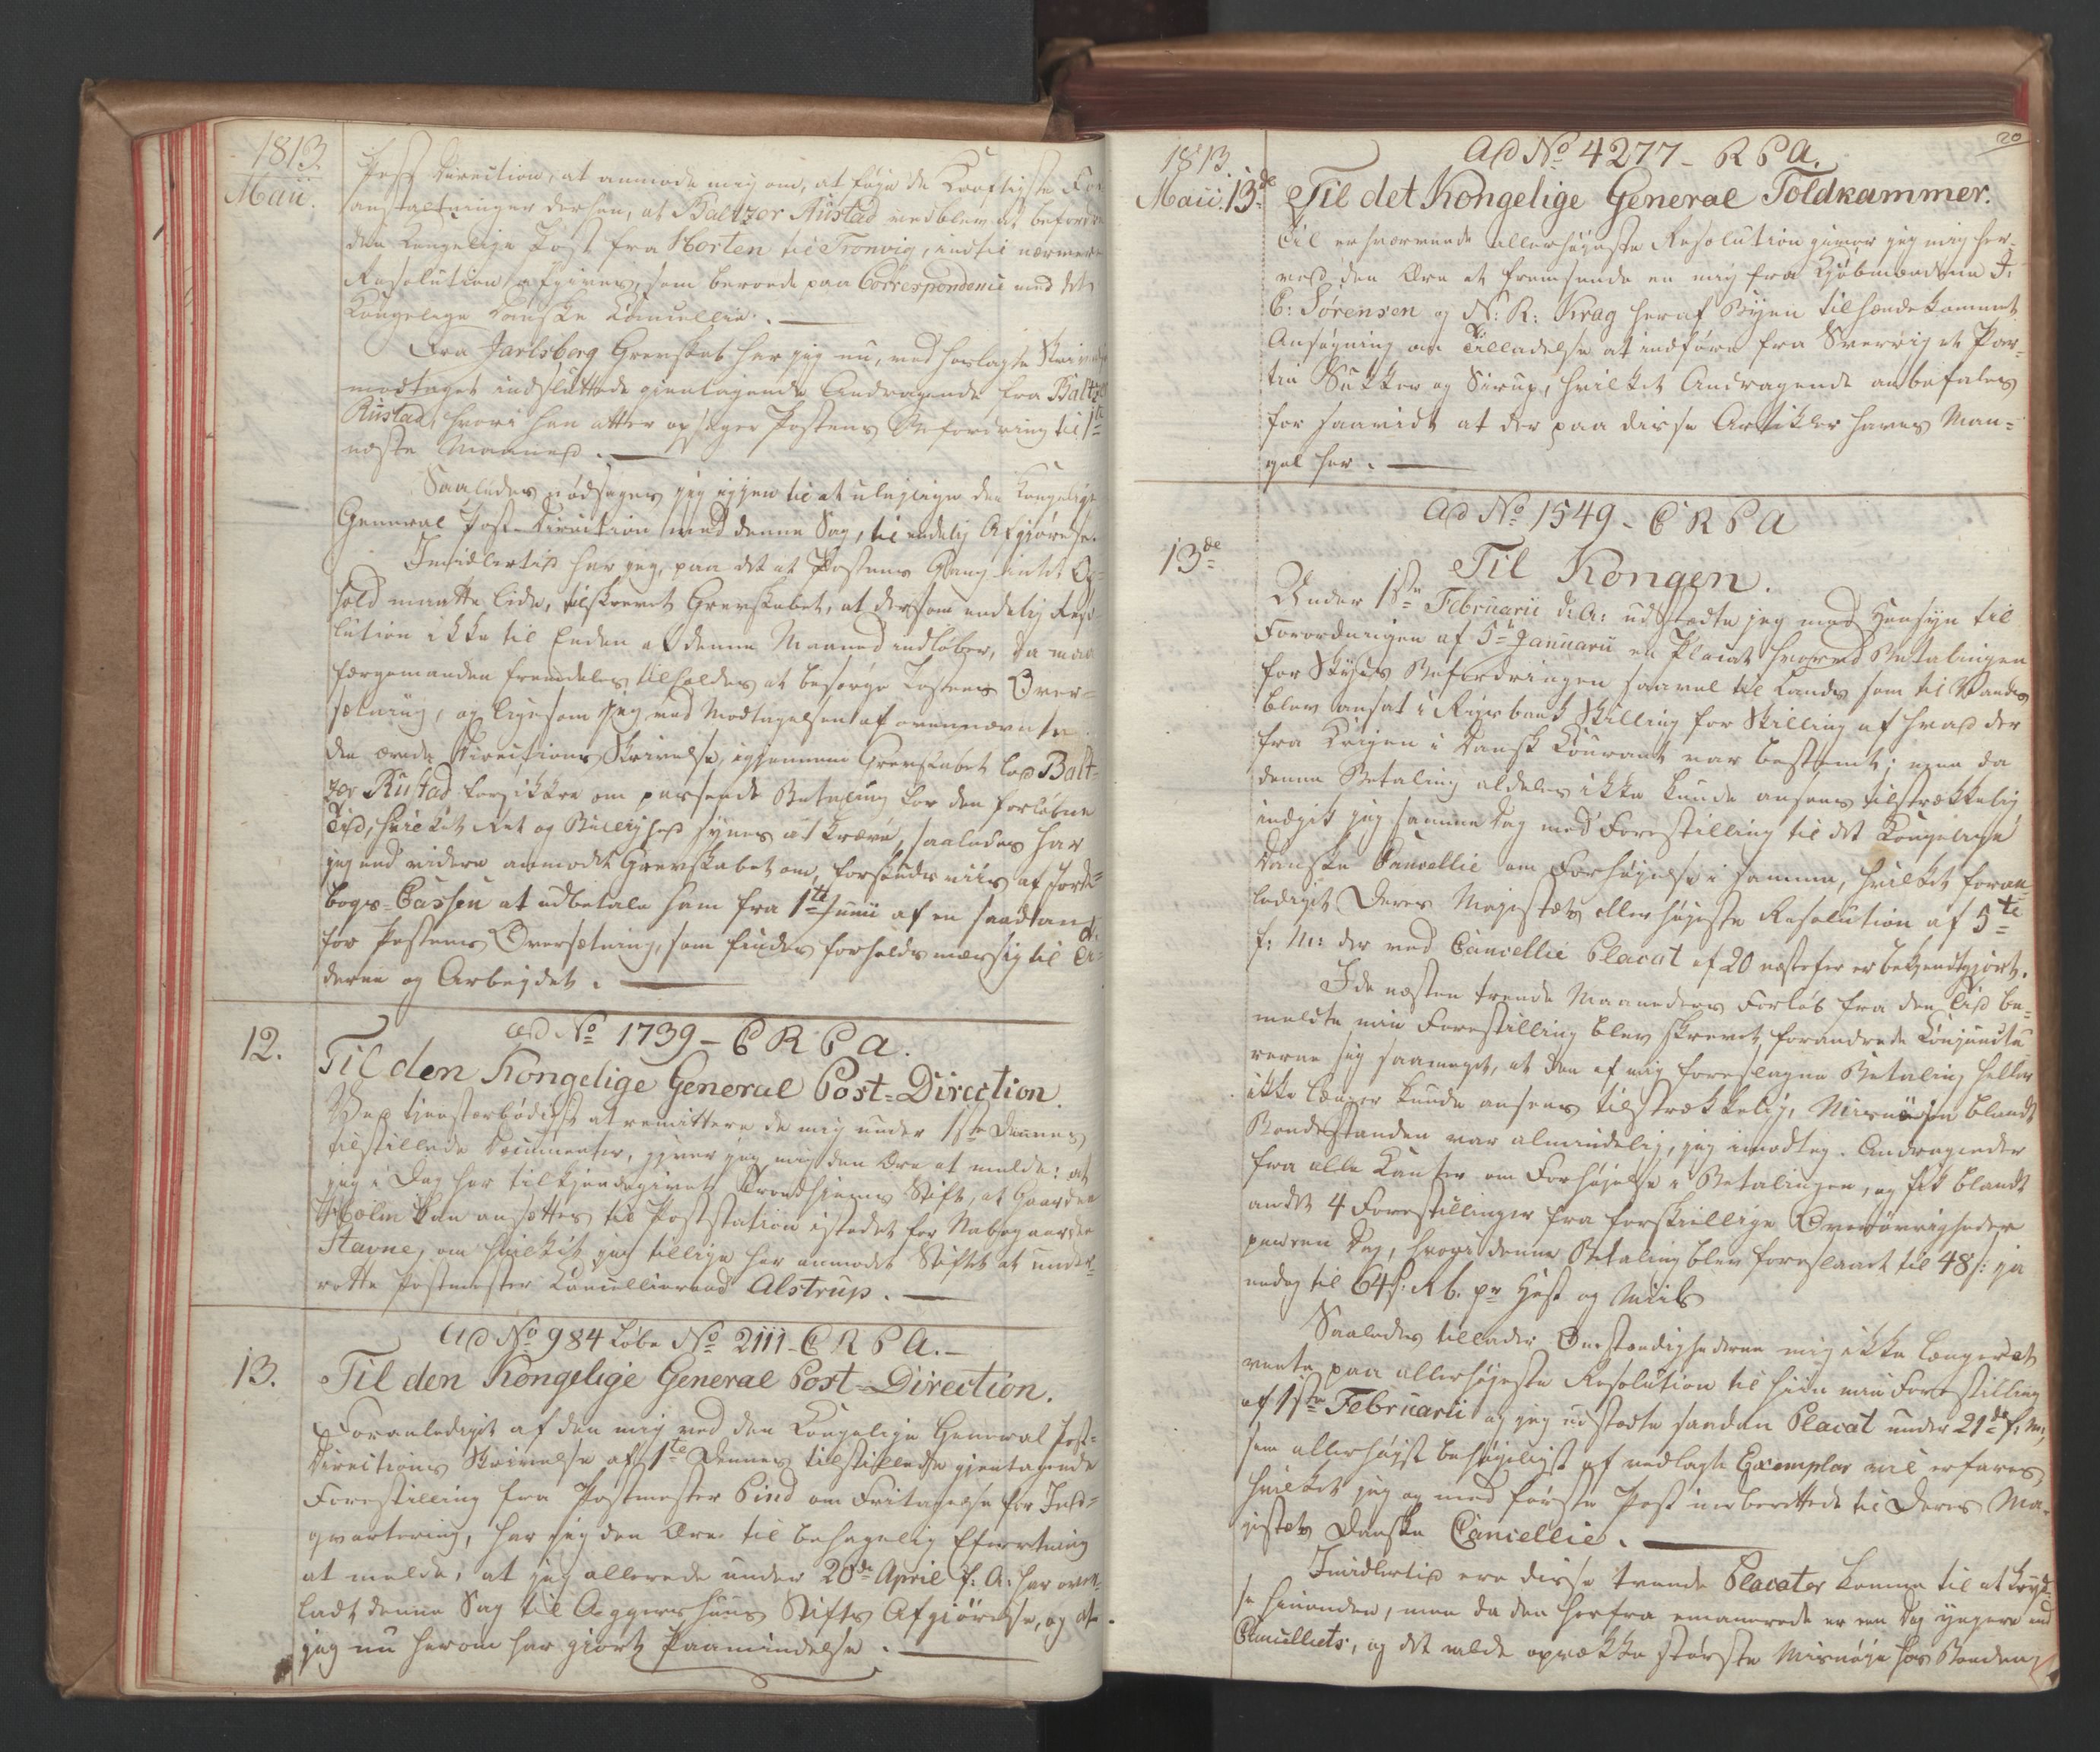 1813.
Maii.
Post Direction, at anmode mig om, at føje de kraftigste For-
anstaltninger derhen, at Baltzer Rustad vedblev at befordre
den Kongelige Post fra Horten til Tronvig, indtil nærmere
Resolution afgives, som beroede paa Correspondence med det
Kongelige Danske Cancellie. —
Fra Jarlsberg Grevskab har jeg nu, ved hoslagte Skrivelse
modtaget indsluttede gientagende Andragende fra Baltzer
Rustad, hvori han atter opsiger Postens Befordring til 1te
næste Maaned. —
Saaledes nødsages jeg igjen til at uleilige den Kongelige
General Post-Direction med denne Sag, til endelig Afgiørelse.
Imidlertid har jeg, paa det at Postens Gang intet Op-
hold maatte lide, tilskrevet Grevskabet, at dersom endelig Reso-
lution ikke til Enden af denne Maaned indløber, da maa
Færgemanden fremdeles tilholdes at besørge Postens Over-
sætning, og ligesom jeg ved Modtagelsen af ovennævnte
den ærede Directions Skrivelse, igjennem Grevskabet lod Balt-
zer Rustad forsikkre om passende Betaling for den forløbne
Tid, hvilket Ret og Billighed synes at kræve, saaledes har
jeg end videre anmodet Grevskabet om, forskuds viis af Jorde-
bogs-Cassen at udbetale ham fra 1te Junii af en saadan
for Postens Oversætning, som findes forholdsmæssig til Ti-
derne og Arbejdet. —
12.
Ad No 1739 – C R P A.
Til den Kongelige General Post-Direction.
Ved tienstærbødigst at remittere de mig under 1ste Dennes
tilstillede Documenter, giver jeg mig den Ære at melde: at
jeg i Dag har tilkjendegivet Trondhjems Stift, at Gaarden
Holm kan ansættes til Poststation istedet for Nabogaarden
Stavne, om hvilket jeg tillige har anmodet Stiftet at under-
rette Postmester Cancellieraad Alstrup. —
13.
Ad No 984 Løbe No 2111 – C R P A. –
Til den Kongelige General Post-Direction.
Foranlediget af den mig ved den Kongelige General Post-
Directions Skrivelse af 1te Dennes tilstillede gientagende
Forestilling fra Postmester Pind om Fritagelse for Ind-
qvartering, har jeg den Ære til behagelig Efterretning
at melde, at jeg allerede under 20de April f: A: har over-
ladt denne Sag til Aggershuus Stifts Afgiørelse, og at
jeg nu herom har giort Paamindelse. —
20
1813.
Maii. 13de
Ad No 4277 – R P A.
Til det Kongelige General Toldkammer.
Til erhværvende allerhøjeste Resolution giver jeg mig her-
ved den Ære at fremsende en mig fra Kjøbmændene J:
C: Sørensen og N: R: Krag her af Byen tilhændekommet
Ansøgning om Tilladelse at indføre fra Sverrig et Par-
tie Sukker og Sirup, hvilket Andragende anbefales
for saavidt at der paa disse Artikler haves Man-
gel her. —
13de
Ad No 1549 – C R P A
Til Kongen.
Under 1ste Februarii d: A: udstædte jeg med Hensyn til
Forordningen af 5te Januarii en Placat hvorved Betalingen
for Skyds Befordringen saavel til Lands som til Vands
blev ansat i Rigsbank Skilling for Skilling af hvad der
fra Krigen i Dansk Courant var bestemt; men da
denne Betaling aldeles ikke kunde ansees tilstrækkelig
indgik jeg samme Dag med Forestilling til det Kongelige
Danske Cancellie om Forhøjelse i samme, hvilket foran-
lediget Deres Majestæts allerhøjeste Resolution af 5te
f: M: der ved Cancellie Placat af 20 næstefter er bekjendtgjort.
I de næsten trende Maaneders Forløb fra den Tid be-
meldte min Forestilling blev skrevet, forandrede Conjunctu-
rerne sig saameget, at den af mig foreslagne Betaling heller
ikke længer kunde ansees tilstrækkelig, Misnøjen blandt
Bondestanden var almindelig, jeg imodtog Andragender
fra alle Kanter om Forhøjelse i Betalingen, og fik blandt
andet 4 Forestillinger fra forskiellige Overøvrigheder
paa een Dag, hvori denne Betaling blev foreslaaet til 48 s: ja
endog til 64 s: Rb. pr Hest og Miil.
Saaledes tillader Omstændighederne mig ikke længer at
vente paa allerhøjeste Resolution til hiin min Forestilling
af 1ste Februarii og jeg udstædte saadan Placat under 21de f: M:,
som allerhøjst behageligst af vedlagte Exemplar vil erfares,
hvilket jeg og med første Post indberettede til Deres Ma-
jestæts Danske Cancellie. —
Imidlertid ere disse tvende Placater komne til at kryd-
se hinanden, men da den herfra emanerede er een Dag yngere end
Cancelliets, og det vilde opvække største Misnøje hos Bonden